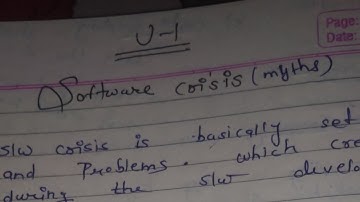 Page:
Date:
U-1
Software crisis (myths)
s/w crisis is basically set
and Problems. which cre
during the s/w develo